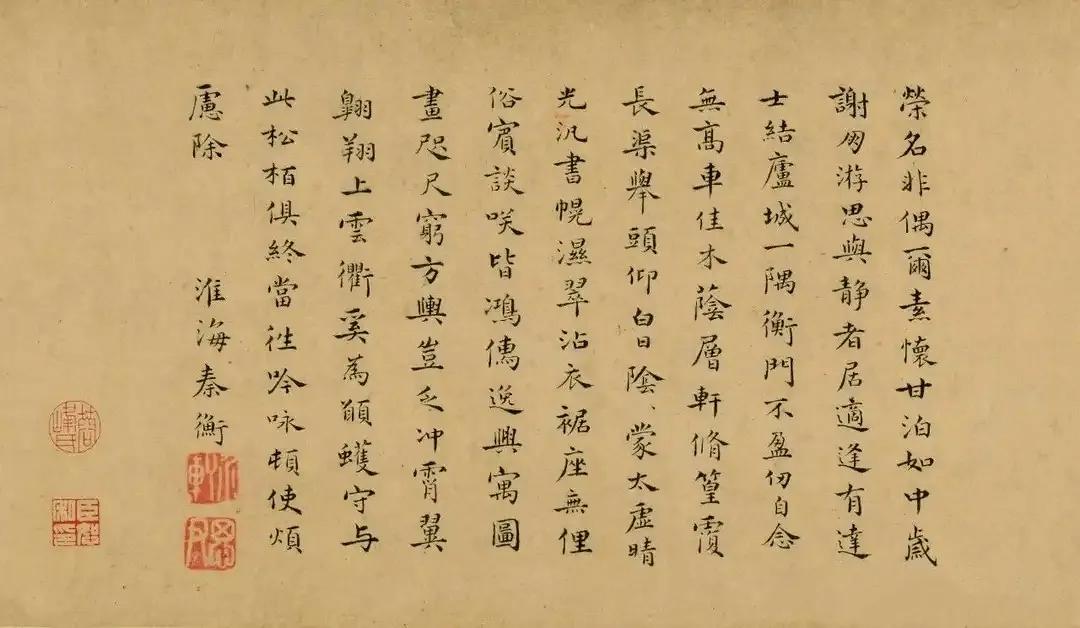 榮名非偶爾素懷甘泊如中歲
謝朋游思與靜者居適逢有達
士結廬城一隅衡門不盈仞自念
無高車佳木蔭層軒脩篁覆
長渠舉頭仰白日陰、蒙太虛晴
光汎書幌濕翠沾衣裾座無俚
俗賓談咲皆鴻儒逸興寓圖
畫咫尺窮方輿豈乏冲霄翼
翺翔上雲衢奚為蠖守与
此松栢俱終當往吟咏頓使煩
慮除
淮海秦衡